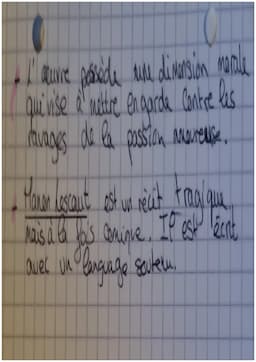 + L'œuvre possède une dimension morale
qui vise à mettre en garde contre les
ravages de la passion amoureuse.
+ Manon Lescaut est un récit tragique,
mais à la fois comique. Il est écrit
avec un language soutenu.